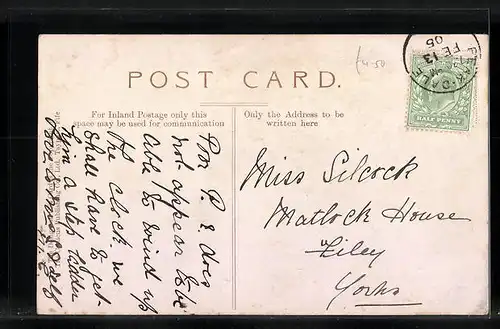 £4-50
POST CARD.
For Inland Postage only this
space may be used for communication
Only the Address to be
written here
FE 13
05
HALF PENNY
Poor P. E does
not appear to be
able to wind up
the clock. we
shall have to get
him a step ladder
Miss Silcock
Matlock House
Filey
Yorks